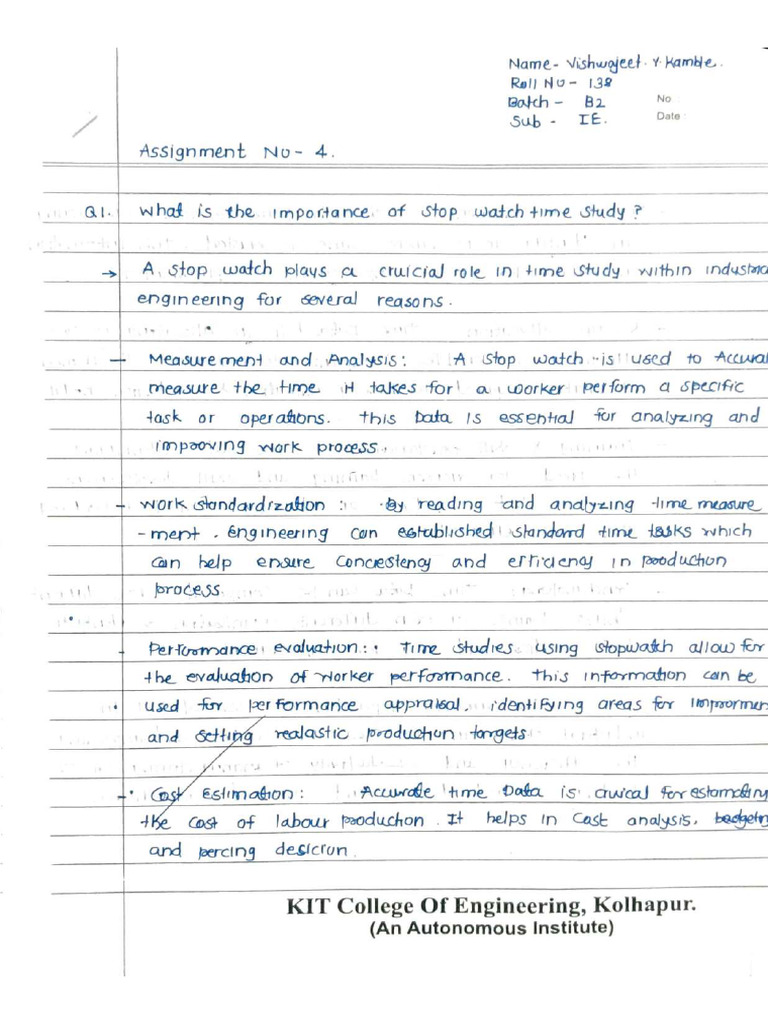 Name- Vishwajeet. Y. Kamble.
Roll No - 138
Batch - B2
No. :
Sub - IE.
Date :
Assignment No- 4.
Q1. What is the importance of stop watch time study?
→ A stop watch plays a cruicial role in time study within industria
engineering for several reasons.
- Measurement and Analysis: A stop watch is used to Accurat
measure the time it takes for a worker perform a specific
task or operations. This Data is essential for analyzing and
improving work process.
- Work standardization: By reading and analyzing time measure
-ment. Engineering can established standard time tasks which
can help ensure and efficiency in production
process.
- Performance evaluation: Time studies using stopwatch allow for
the evaluation of worker performance. This information can be
used for performance appraisal, identifying areas for
and setting realastic production targets.
- Cost Estimation: Accurate time Data is for
the cost of labour production. It helps in Cost analysis,
and percing
KIT College Of Engineering, Kolhapur.
(An Autonomous Institute)